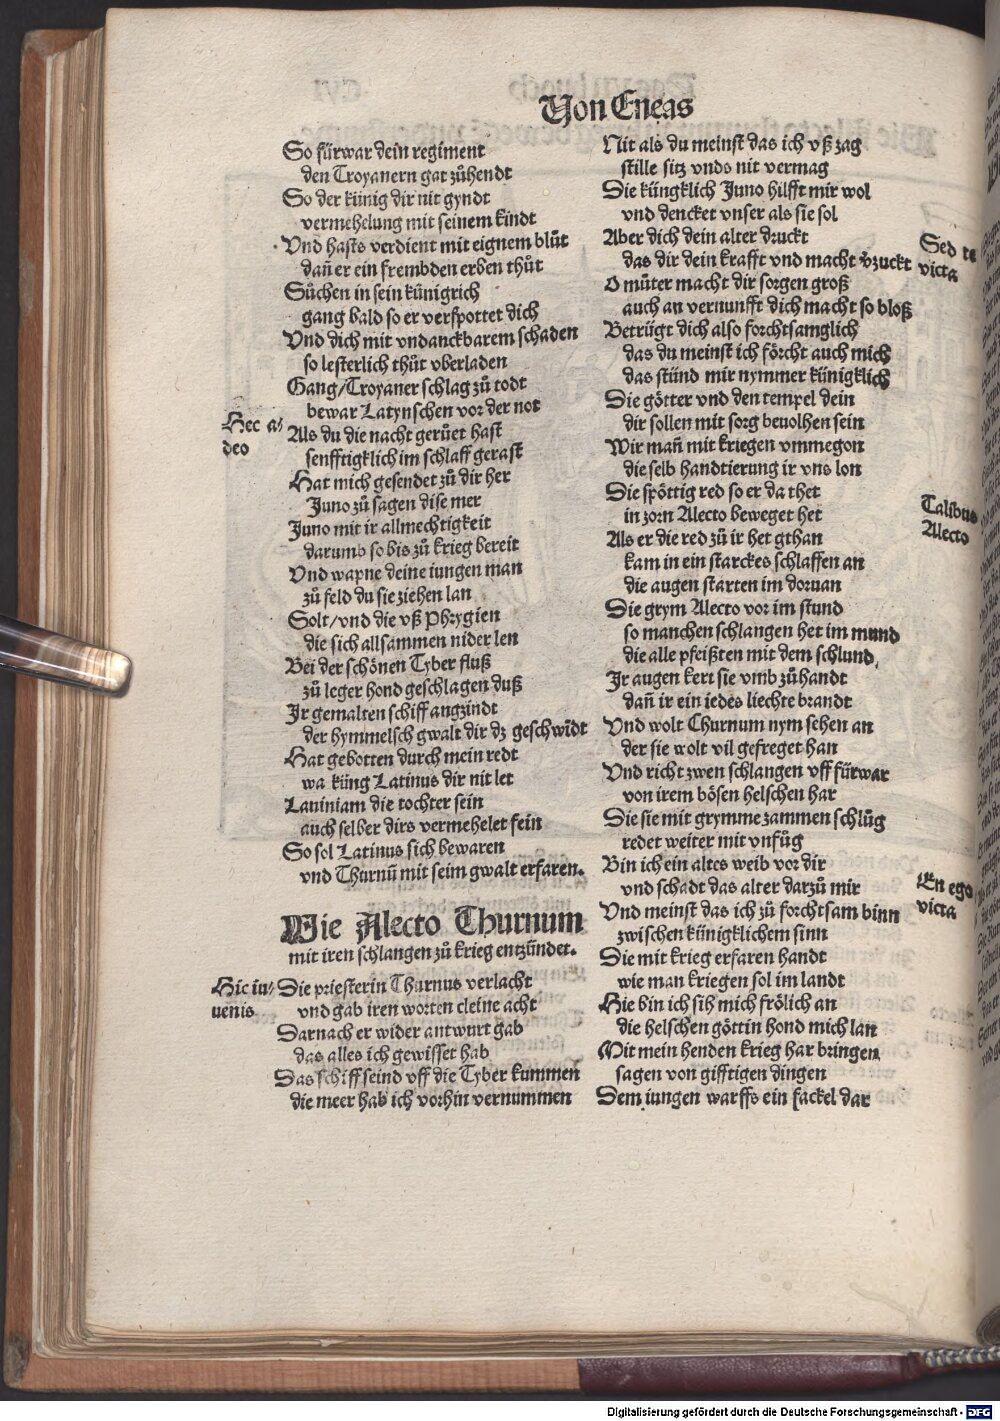 Von Eneas
So fürwar dein regiment
den Troyanern gat zůhendt
So der künig dir nit gyndt
vermehelung mit seinem kindt
Vnd hasts verdient mit eignem blůt
dañ er ein frembden erben thůt
Sůchen in sein künigrich
gang bald so er verspottet dich
Vnd dich mit vndanckbarem schaden
so lesterlich thůt vberladen
Gang/Troyaner schlag zů todt
bewar Latynschen vor der not
Hec a/
deo
Als du die nacht gerůet hast
senfftigklich im schlaff gerast
Hat mich gesendet zů dir her
Juno zů sagen dise mer
Juno mit ir allmechtigkeit
darumb so bis zů krieg bereit
Vnd wapne deine iungen man
zů feld du sie ziehen lan
Solt/vnd die vß Phrygien
die sich allsammen nider len
Bei der schönen Tyber fluß
zů leger hond geschlagen duß
Jr gemalten schiff angzindt
der hymmelsch gwalt dir dz geschwĩdt
Hat gebotten durch mein redt
wa küng Latinus dir nit let
Lauiniam die tochter sein
auch selber dirs vermehelet fein
So sol Latinus sich bewaren
vnd Thurnũ mit seim gwalt erfaren.
Wie Alecto Thurnum
mit iren schlangen zů krieg entzündet.
Hic iu/
uenis
Die priesterin Thurnus verlacht
vnd gab iren worten cleine acht
Darnach er wider antwurt gab
das alles ich gewisset hab
Das schiff seind vff die Tyber kummen
die meer hab ich vorhin vernummen
Nit als du meinst das ich vß zag
stille sitz vnds nit vermag
Die küngklich Juno hilfft mir wol
vnd dencket vnser als sie sol
Aber dich dein alter druckt
das dir dein krafft vnd macht v̈zuckt
Sed te
victa
O můter macht dir sorgen groß
auch an vernunfft dich macht so bloß
Betrügt dich also forchtsamglich
das du meinst ich förcht auch mich
das stünd mir nymmer künigklich
Die götter vnd den tempel dein
dir sollen mit sorg beuolhen sein
Wir mañ mit kriegen vmmegon
die selb handtierung ir vns lon
Die spöttig red so er da thet
in zorn Alecto beweget het
Talibus
Alecto
Als er die red zů ir het gthan
kam in ein starckes schlaffen an
die augen starten im doruan
Die grym Alecto vor im stund
so manchen schlangen het im mund
die alle pfeißten mit dem schlund
Jr augen kert sie vmb zů handt
dañ ir ein iedes liechte brandt
Vnd wolt Thurnum nym sehen an
der sie wolt vil gefreget han
Vnd richt zwen schlangen vff fürwar
von irem bösen helschen har
Die sie mit grymme zammen schlůg
redet weiter mit vnfůg
Bin ich ein altes weib vor dir
vnd schadt das alter darzů mir
En ego
victa
Vnd meinst das ich zů forchtsam binn
zwischen künigklichem sinn
Die mit krieg erfaren handt
wie man kriegen sol im landt
Hie bin ich sih mich frölich an
die helschen göttin hond mich lan
Mit mein henden krieg har bringen
sagen von gifftigen dingen
Dem iungen warffs ein fackel dar
Digitalisierung gefördert durch die Deutsche Forschungsgemeinschaft - DFG